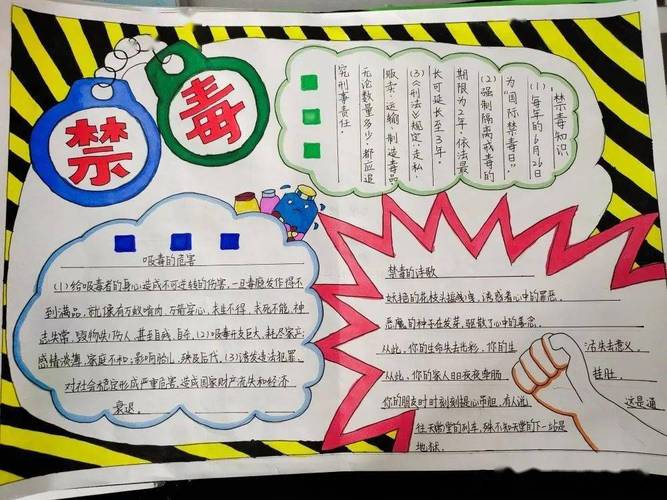 禁毒
禁毒知识
(1)每年的6月26日
为“国际禁毒日”
(2)强制隔离戒毒的
期限为2年,依法最
长可延长至3年.
(3)《刑法》规定:走私
贩卖、运输、制造毒品
无论数量多少,都应追
究刑事责任.
吸毒的危害
(1)给吸毒者的身心造成不可逆转的伤害,一旦毒瘾发作得不
到满足,就像有万蚁啃肉,万箭穿心,求生不得,求死不能,神
志失常,毁物伤人,甚至自残、自杀.(2)吸毒开支巨大,耗尽家产;
感情淡薄,家庭不和;影响胎儿,殃及后代.(3)诱发违法犯罪.
对社会稳定形成严重危害,造成国家财产流失和经济
衰退.
禁毒的诗歌
妖艳的花枝头摇曳,诱惑着心中的罪恶.
恶魔的种子在发芽,驱散了心中的善念.
从此,你的生命失去光彩,你的生 活失去意义.
从此,你的家人日夜夜牵肠 挂肚.
你的朋友时时刻刻提心吊胆,有人说 这是通
往天堂的列车,殊不知天堂的下一站是
地狱.